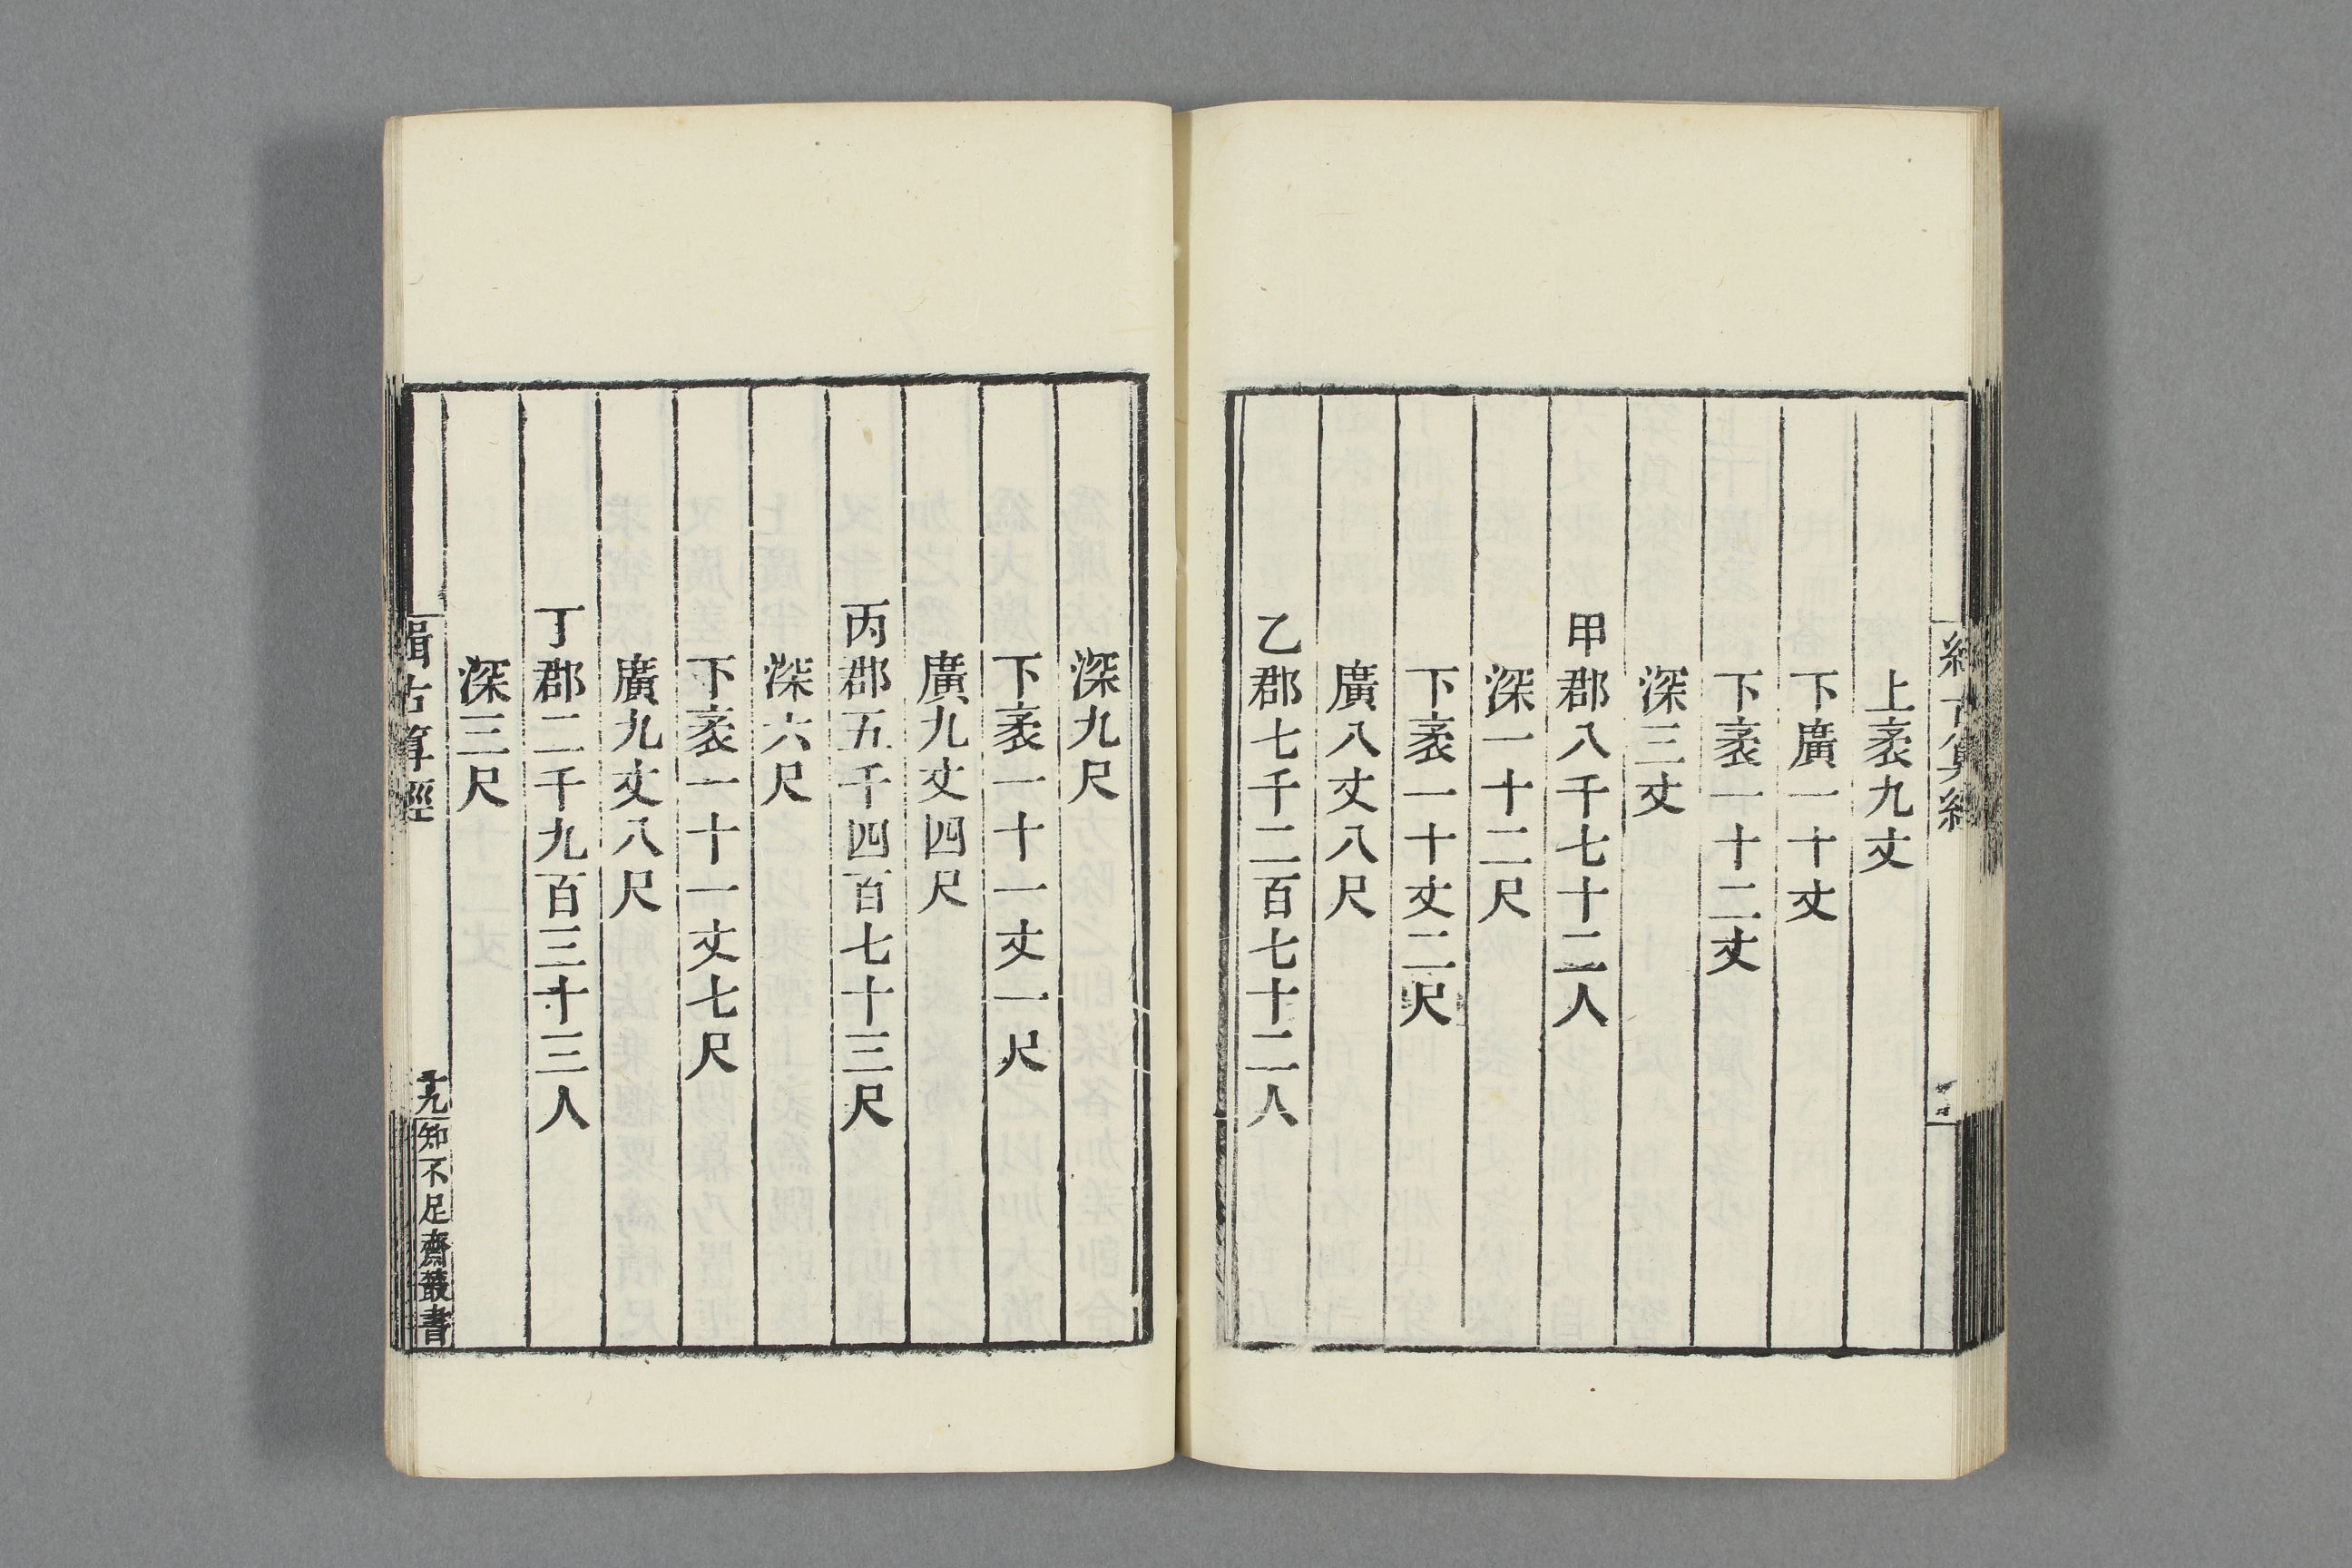 上袤九丈
下廣一十丈
下袤一十二丈
深三丈
甲郡八千七十二人
深一十二尺
下袤一十丈二尺
廣八丈八尺
乙郡七千二百七十二人
深九尺
下袤一十一丈一尺
廣九丈四尺
丙郡五千四百七十三尺
深六尺
下袤一十一丈七尺
廣九丈八尺
丁郡二千九百三十三人
深三尺
緝古算經
十九
知不足齋叢書